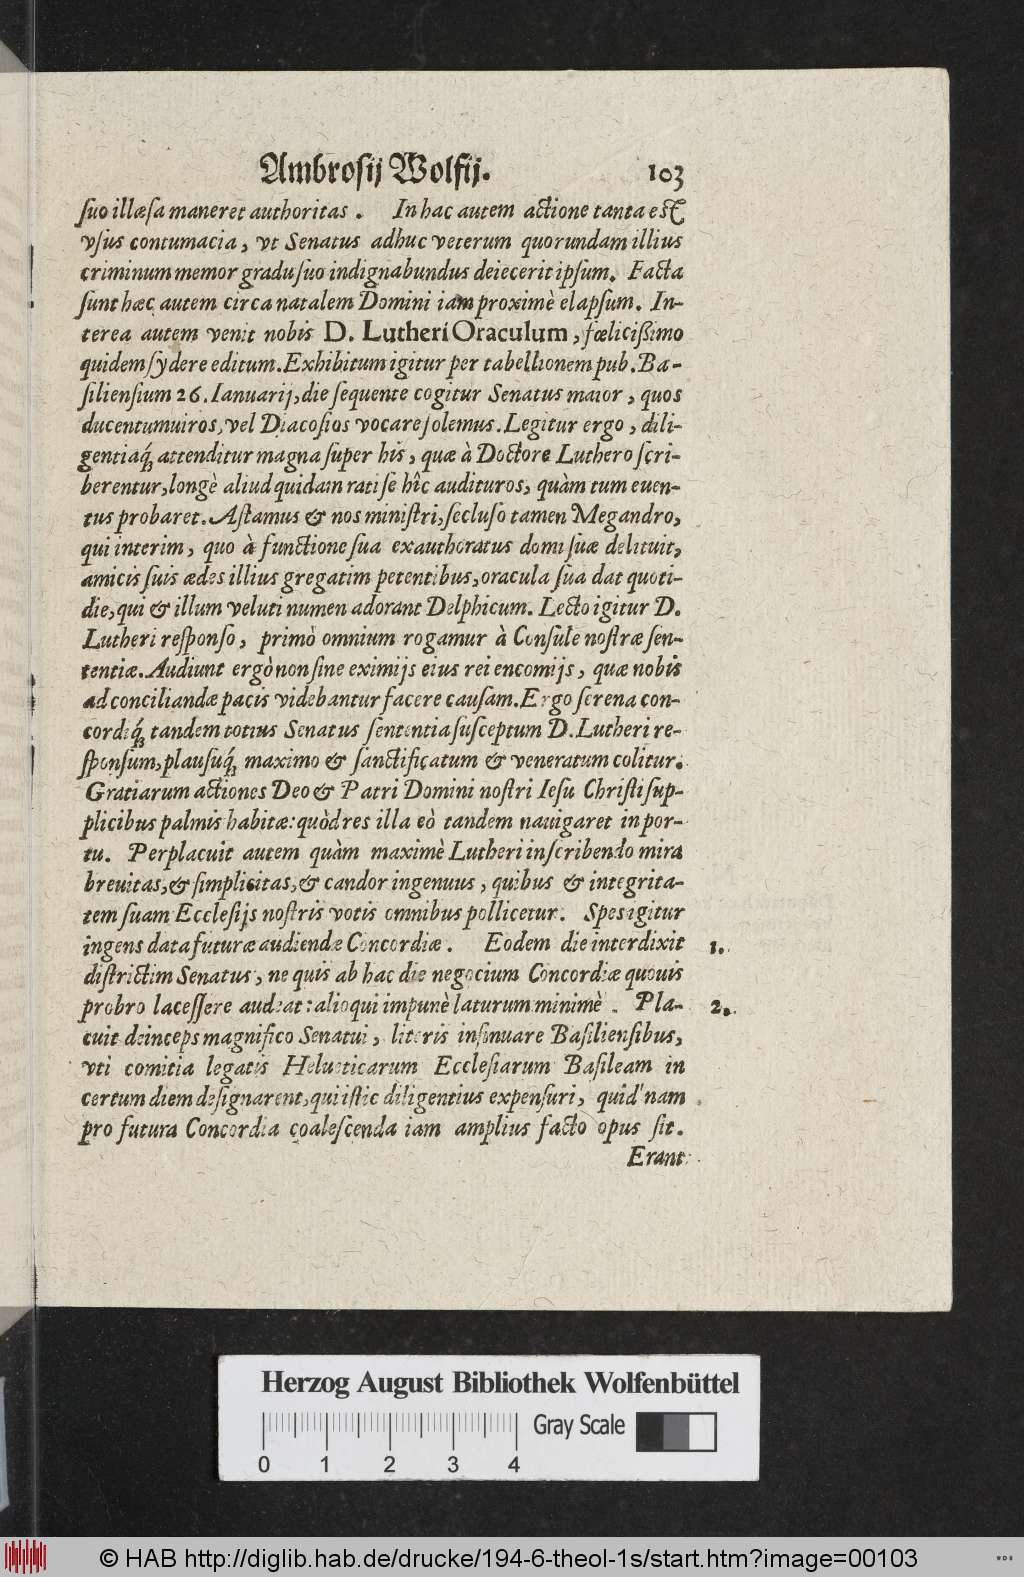 Ambrosij Wolfij. 103
suo illæsa maneret authoritas. In hac autem actione tanta est
vsus contumacia, vt Senatus adhuc veterum quorundam illius
criminum memor gradu suo indignabundus deiecerit ipsum. Facta
sunt hæc autem circa natalem Domini iam proximè elapsum. In-
terea autem venit nobis D. Lutheri Oraculum, fœlicißimo
quidem sydere editum. Exhibitum igitur per tabellionem pub. Ba-
siliensium 26. Ianuarij, die sequente cogitur Senatus maior, quos
ducentumuiros, vel Diacosios vocare solemus. Legitur ergo, dili-
gentiaq́; attenditur magna super his, quæ à Doctore Luthero scri-
berentur, longè aliud quidam rati se hîc audituros, quàm tum euen-
tus probaret. Astamus & nos ministri, secluso tamen Megandro,
qui interim, quo à functione sua exauthoratus domi suæ delituit,
amicis suis ædes illius gregatim petentibus, oracula sua dat quoti-
die, qui & illum veluti numen adorant Delphicum. Lecto igitur D.
Lutheri responso, primò omnium rogamur à Consule nostræ sen-
tentiæ. Audiunt ergò non sine eximijs eius rei encomijs, quæ nobis
ad conciliandæ pacis videbantur facere causam. Ergo serena con-
cordiq́; tandem totius Senatus sententia susceptum D. Lutheri re-
sponsum, plausuq́; maximo & sanctificatum & veneratum colitur.
Gratiarum actiones Deo & Patri Domini nostri Iesu Christi sup-
plicibus palmis habitæ: quòd res illa eò tandem nauigaret in por-
tu. Perplacuit autem quàm maximè Lutheri in scribendo mira
breuitas, & simplicitas, & candor ingenuus, quibus & integrita-
tem suam Ecclesijs nostris votis omnibus pollicetur. Spes igitur
ingens data futuræ audiendæ Concordiæ. Eodem die interdixit 1.
districtim Senatus, ne quis ab hac die negocium Concordiæ quouis
probro lacessere audeat: alioqui impunè laturum minimè. Pla- 2.
cuit deinceps magnifico Senatui, literis insinuare Basiliensibus,
vti comitia legatis Helueticarum Ecclesiarum Basileam in
certum diem designarent, qui istic diligentius expensuri, quid nam
pro futura Concordia coalescenda iam amplius facto opus sit.
Erant
Herzog August Bibliothek Wolfenbüttel
Gray Scale
0 1 2 3 4
© HAB http://diglib.hab.de/drucke/194-6-theol-1s/start.htm?image=00103